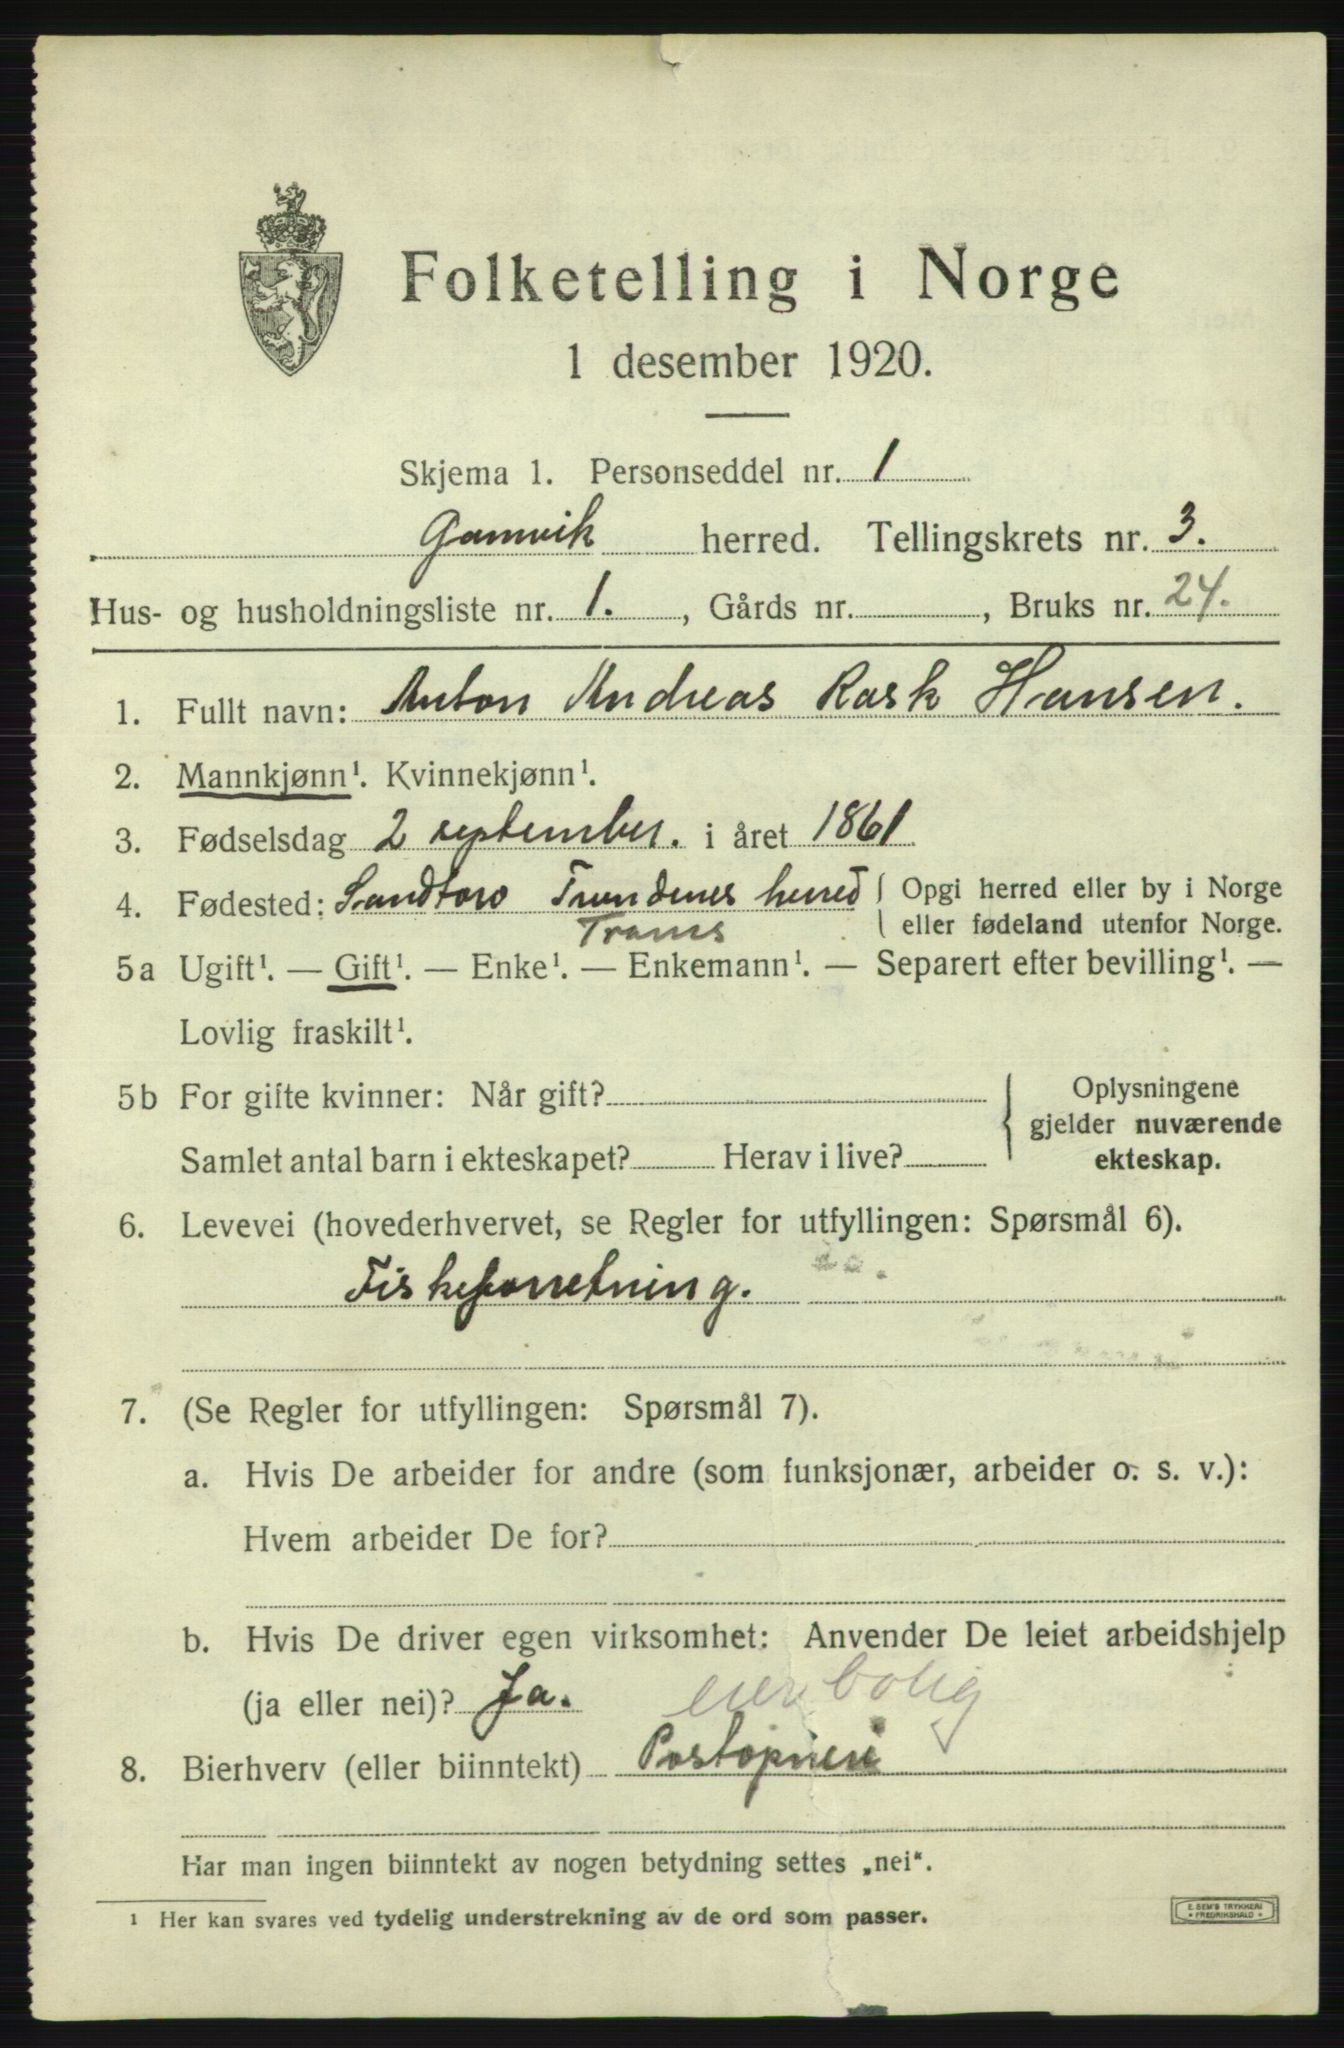 Folketelling i Norge
1 desember 1920.
Skjema 1. Personseddel nr. 1
Gamvik herred. Tellingskrets nr. 3.
Hus- og husholdningsliste nr. 1., Gårds nr., Bruks nr. 24.
1. Fullt navn: Anton Andreas Rask Hansen.
2. Mannkjønn¹. Kvinnekjønn¹.
3. Fødselsdag 2 september. i året 1861
4. Fødested: Sandtorv Trondenes herred Opgi herred eller by i Norge
Troms eller fødeland utenfor Norge.
5a Ugift¹. — Gift¹. — Enke¹. — Enkemann¹. — Separert efter bevilling¹. —
Lovlig fraskilt¹.
5b For gifte kvinner: Når gift? Oplysningene
gjelder nuværende
Samlet antal barn i ekteskapet? Herav i live? ekteskap.
6. Levevei (hovederhvervet, se Regler for utfyllingen: Spørsmål 6).
Fiskeforretning.
7. (Se Regler for utfyllingen: Spørsmål 7).
a. Hvis De arbeider for andre (som funksjonær, arbeider o. s. v.):
Hvem arbeider De for?
b. Hvis De driver egen virksomhet: Anvender De leiet arbeidshjelp
(ja eller nei)? Ja. bolig
8. Bierhverv (eller biinntekt) Postopneri
Har man ingen biinntekt av nogen betydning settes „nei“.
¹ Her kan svares ved tydelig understrekning av de ord som passer.
E. SEM'S TRYKKERI
FREDRIKSHALD